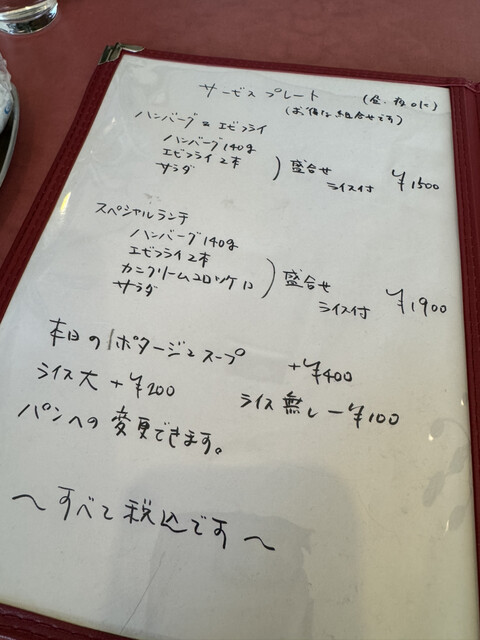 サービスプレート (昼・夜OK)
(お得な組合せです)
ハンバーグとエビフライ
ハンバーグ140g
エビフライ2本
サラダ
盛合せ
ライス付 ¥1500
スペシャルランチ
ハンバーグ140g
エビフライ2本
カニクリームコロッケ1コ
サラダ
盛合せ
ライス付 ¥1900
本日のポタージュスープ +¥400
ライス大 +¥200 ライス無し-¥100
パンへの変更できます。
〜すべて税込です〜